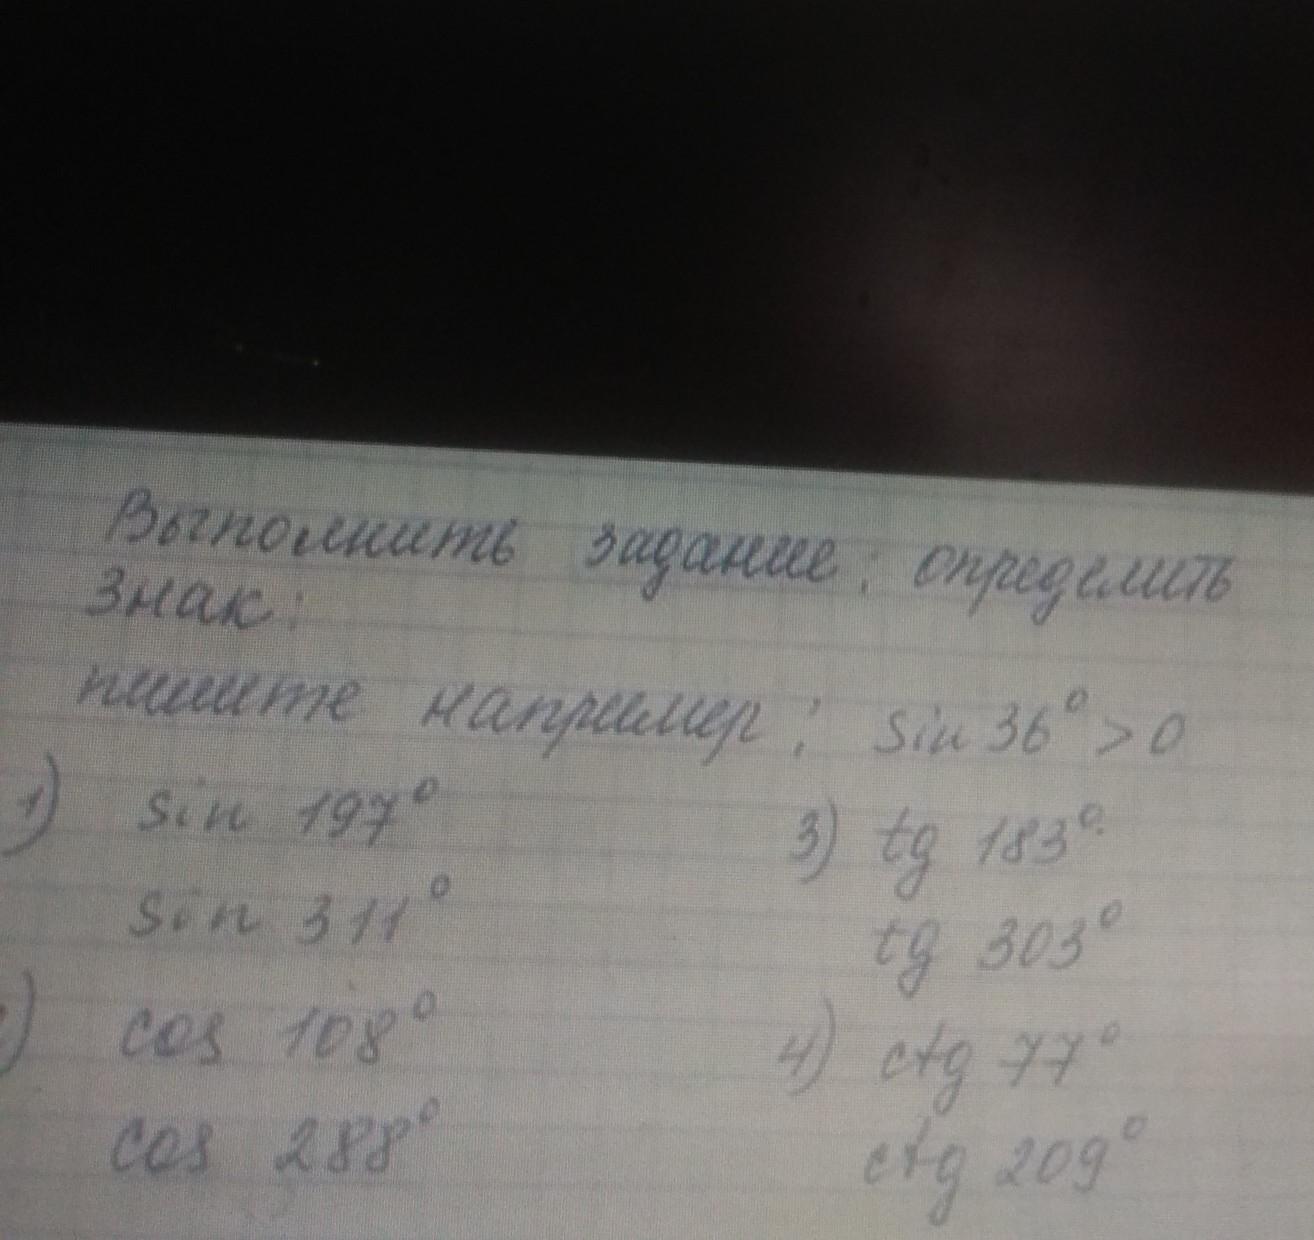 Выполнить задание: определить
знак:
пишите например: sin 36° > 0
1) sin 197°
sin 311°
) cos 108°
cos 288°
3) tg 183°
tg 303°
4) ctg 77°
ctg 209°